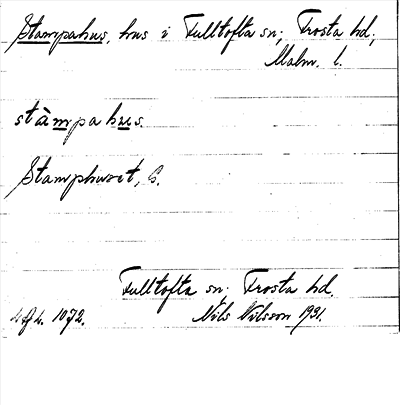 Stampahus, hus i Fulltofta sn; Frosta hd;
Malm. l.
stàmpahus.
Stamphuset, G.
Fulltofta sn. Frosta hd.
1072. Nils Nilsson 1931.